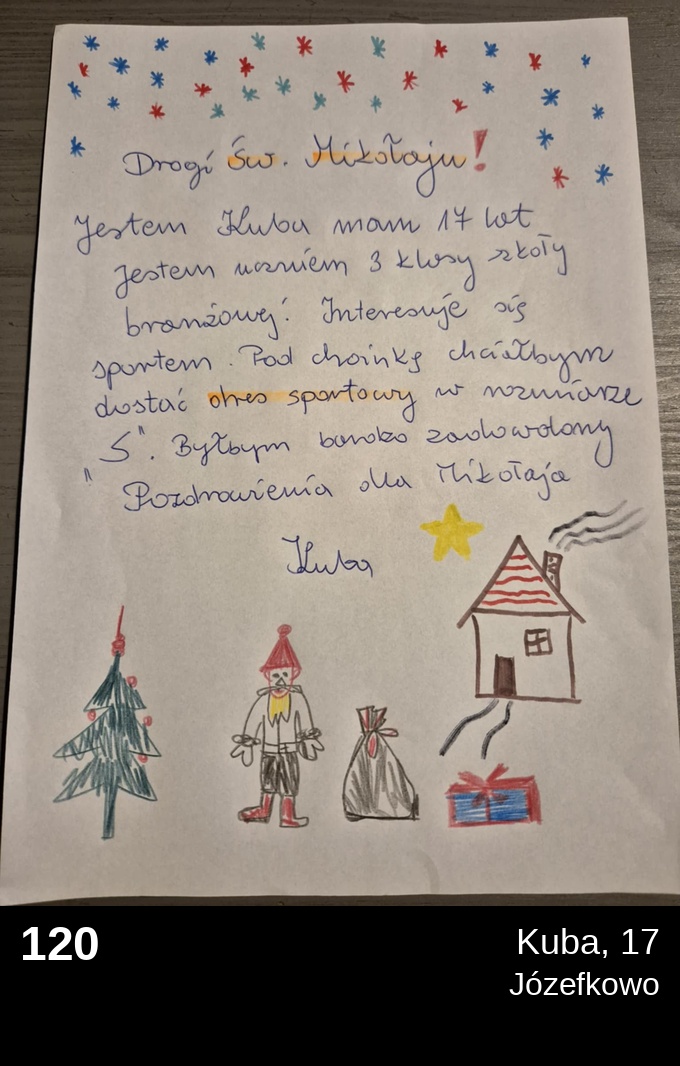 Drogi Św. Mikołaju!
Jestem Kuba mam 17 lat
Jestem uczniem 3 klasy szkoły
branżowej. Interesuje się
sportem. Pod choinkę chciałbym
dostać dres sportowy w rozmiarze
"S". Byłbym bardzo zadowolony
Pozdrowienia dla Mikołaja
Kuba
120
Kuba, 17
Józefkowo